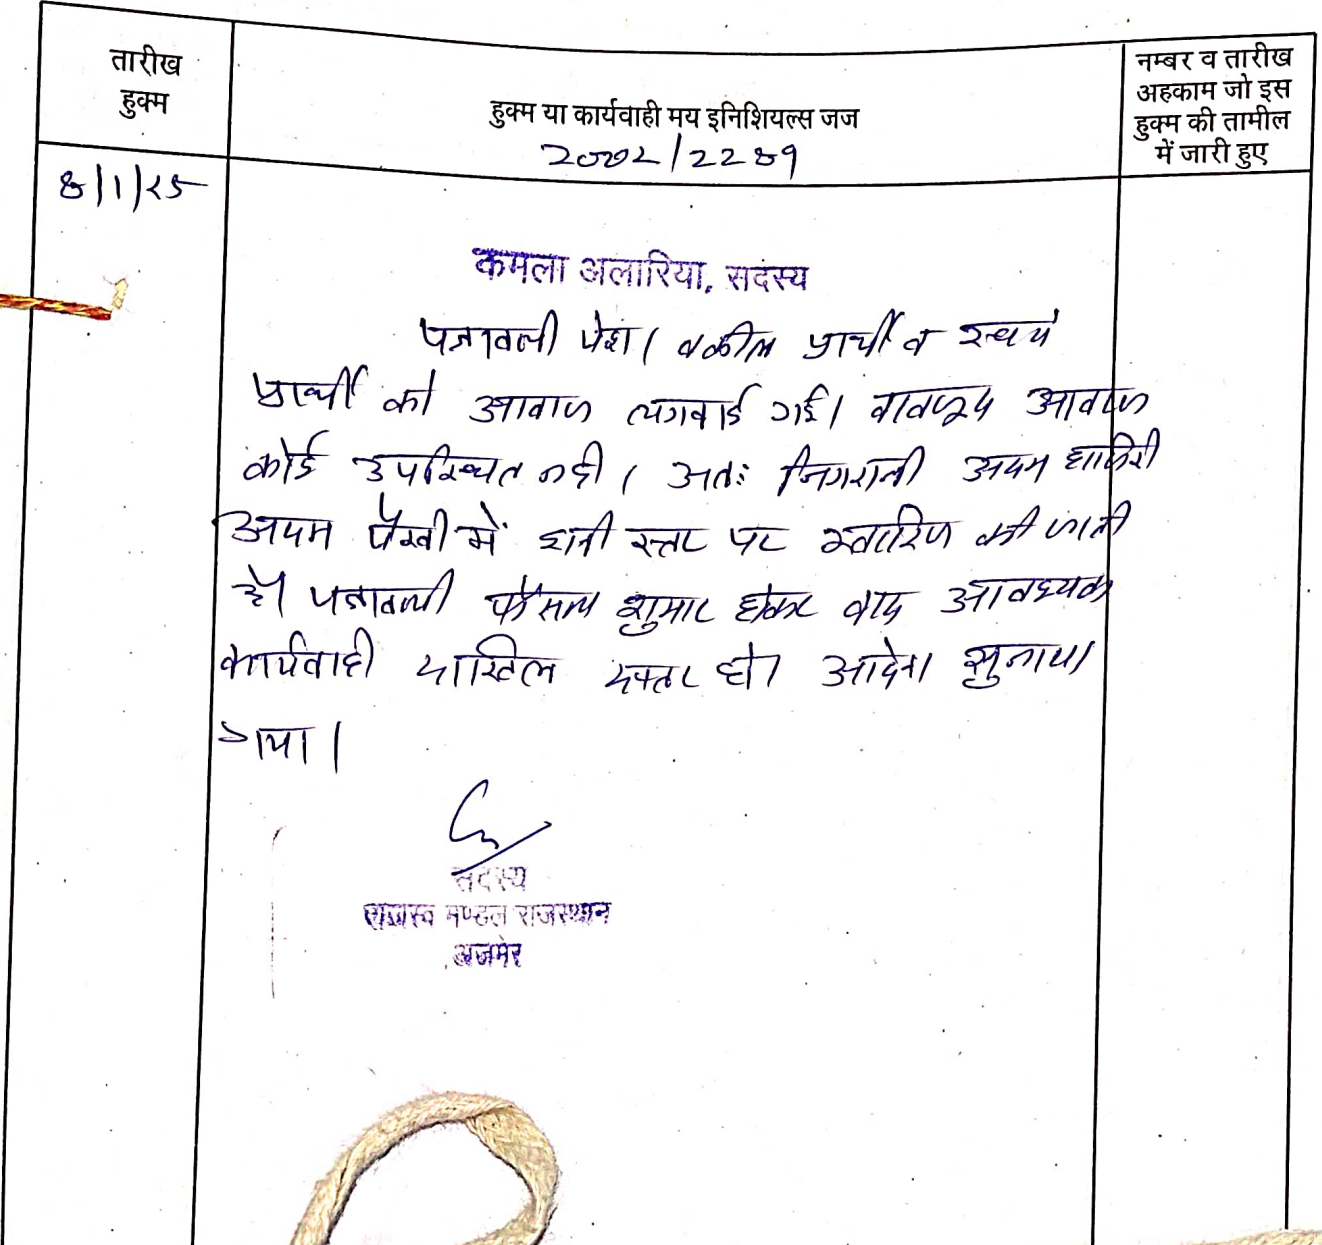 तारीख
हुक्म
हुक्म या कार्यवाही मय इनिशियल्स जज
नम्बर व तारीख
अहकाम जो इस
हुक्म की तामील
में जारी हुए
2002/2289
8/1/25
कमला अलारिया, सदस्य
पत्रावली पेश। वकील प्रार्थी व स्वयं
प्रार्थी को आवाज लगवाई गई। बावजूद आवाज
कोई उपस्थित नहीं। अतः निगरानी अदम हाजिरी
अदम पैरवी में इसी स्तर पर खारिज की जाती
है। पत्रावली फैसल शुमार होकर बाद आवश्यक
कार्यवाही दाखिल दफ्तर हो। आदेश सुनाया
गया।
सदस्य
राजस्व मण्डल राजस्थान
अजमेर